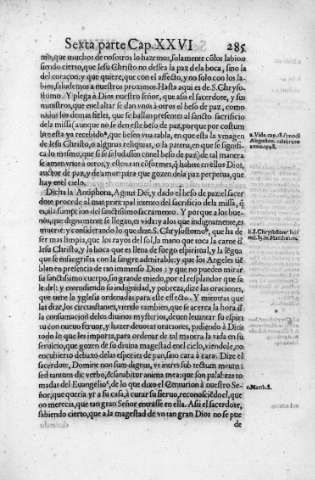 Sexta parte Cap. XXVI 285
mo, que muchos de nosotros lo hazemos, solamente cõ los labios
siendo cierto, que Iesu Christo no dessea la paz de la boca, sino la
del coraçon; y que quiere, que con el affecto, y no solo con los la-
bios, saludemos a nuestros proximos. Hasta aqui es de S. Chryso-
stomo. Y plega â Dios nuestro señor, que assi el sacerdote, y sus
ministros, que en el altar se dan vnos â otros el beso de paz, como
los demas fieles, que se hallan presentes al sancto sacrificio
de la missa (aunque no se den este beso de paz, porque por costum
bre esta ya recebido, que besen vna tabla, en que esta la ymagen
de Iesu Christo, o algunas reliquias, o la patena, en que se signifi-
ca lo mismo, que si se saludassen con el beso de paz) de tal manera
se amen vnos â otros, y esten tan cõformes, q̃ habite en ellos Dios,
auctor de paz, y de amor: para que gozen de la paz perpetua, que
hay en el cielo.
Dicha la Antiphona, Agnus Dei, y dado el beso de paz, el sacer
dote procede al mas principal intento del sacrificio de la missa, q̃
es, a la sumpcion del sanctissimo sacramento. Y porque a los hue-
nos, que dignamente se llegan, es vida; y a los que indignamente, es
muerte: y considerando lo que dize S. Chrysostomo, que ha de
ser mas limpia, que los rayos del sol, la mano que toca la carne de
Iesu Christo, y la boca que se llena de fuego espiritual, y la légua
que se ensangrienta con la sangre admirable: y que los Angeles tié
blan en presencia de tan immenso Dios: y que no pueden mirar
su sanctissimo cuerpo, sin grande miedo, por el resplandor que sa
le del: y conosciendo su indignidad, y pobreza, dize las oraciones,
que tiene la yglesia ordenadas para este effecto. Y mientras que
las dize, los circunstantes, viendo tambien, que se acerca la hora de
la consumacion de los diuinos mysterios, deuen leuantar su espiri
tu con nueuo feruor, y hazer deuotas oraciones, pidiendo â Dios
todo lo que les importa, para ordenar de tal manera la vida en su
seruicio, que gozen de su diuina magestad en el cielo, viendole, no
encubierto debaxo de las especies de pan, sino cara â cara. Dize el
sacerdote, Domine non sum dignus, vt intres sub tectum meum:
sed tantum dic verbo, & sanabitur anima mea: que son palabras to
madas del Euangelio, de lo que dixo el Centurion â nuestro Se-
ñor, que queria yr a su casa, â curar su sieruo, reconosciédo el, que
no merecia, que tan gran Señor entrasse en ella. Assi el sacerdote,
sabiendo cierto, que a la magestad de vn tan gran Dios no se pue
de